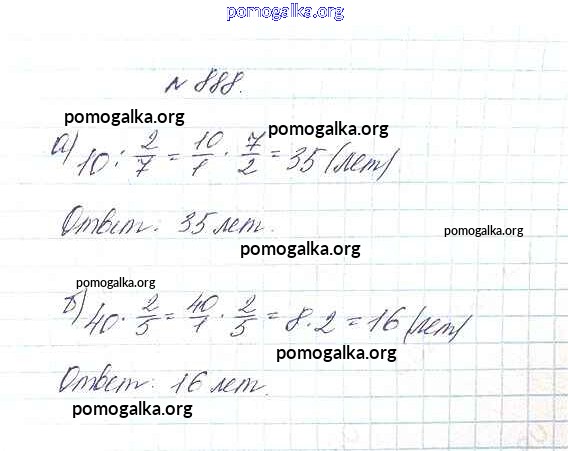 pomogalka.org
№ 888.
pomogalka.org
pomogalka.org
а) 10 : 2/7 = 10/1 · 7/2 = 35 (лет)
Ответ: 35 лет.
pomogalka.org
pomogalka.org
pomogalka.org
б) 40 · 2/5 = 40/1 · 2/5 = 8 · 2 = 16 (лет)
pomogalka.org
Ответ: 16 лет.
pomogalka.org